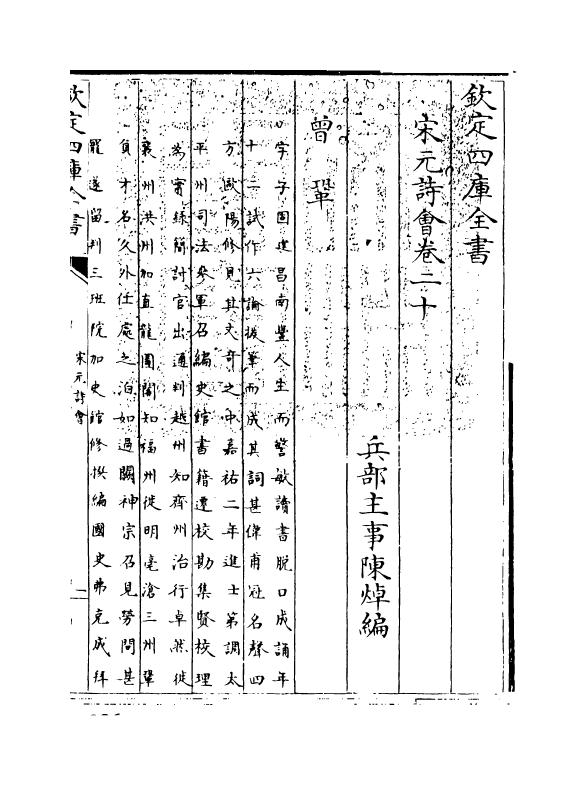 欽定四庫全書
宋元詩會卷二十
兵部主事陳焯編
曾鞏
字子固建昌南豐人生而警敏讀書脫口成誦年
十二試作六論援筆而成其詞甚偉甫冠名聲四
方歐陽修見其文奇之中嘉祐二年進士第調太
平州司法參軍召編史館書籍遷校勘集賢校理
為實錄簡討官出通判越州知齊州治行卓然徙
襄州洪州加直龍圖閣知福州徙明亳滄三州鞏
負才名久外任處之泊如過闕神宗召見勞問甚
寵遂留判三班院加史館修撰編國史弗克成拜
欽定四庫全書
宋元詩會
一